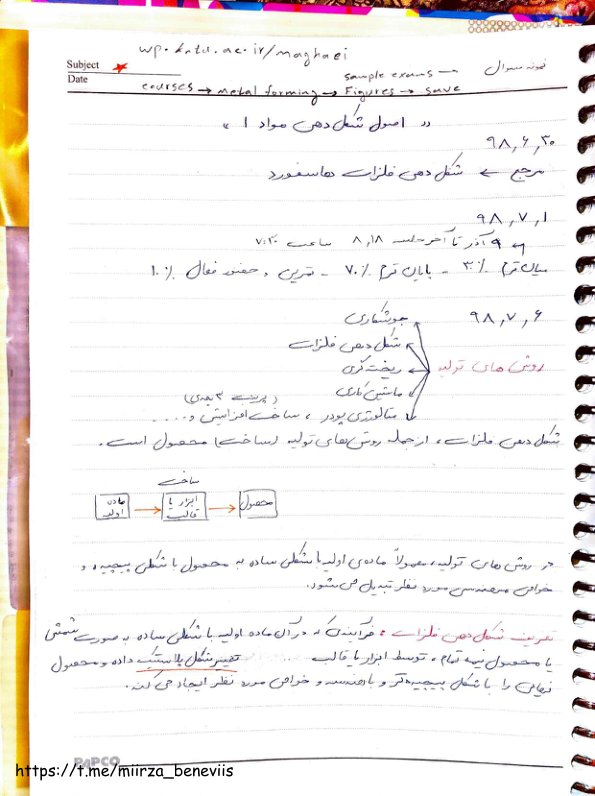 wp.kntu.ac.ir/maghaei
Subject
نمونه سوال sample exams
Date
courses → metal forming → Figures → save
« اصول شکل دهی مواد ۱ »
۹۸,۶,۳۰
مرجع ← شکل دهی فلزات هاسفورد
۹۸,۷,۱
۹ آذر تا آخر جلسه ۸,۱۸ ساعت ۷:۳۰
میان ترم ٪۳۰ - پایان ترم ٪۷۰ - تمرین و حضور فعال ٪۱۰
۹۸,۷,۶
جوشکاری
شکل دهی فلزات
روش های تولید
ریخته گری
ماشین کاری
(پرینت ۳ بعدی)
متالورژی پودر ، ساخت افزایشی و ....
شکل دهی فلزات، از جمله روش های تولید (ساخت) محصول است.
ساخت
ماده اولیه → ابزار یا قالب → محصول
در روش های تولید، معمولاً ماده ی اولیه با شکلی ساده به محصول با شکلی پیچیده و
خواص مهندسی مورد نظر تبدیل می شود.
تعریف شکل دهی فلزات : فرآیندی که در آن ماده اولیه با شکلی ساده به صورت شمش
یا محصول نیمه تمام ، توسط ابزار یا قالب ...... تغییر شکل پلاستیک داده و محصول
نهایی را با شکل پیچیده تر و با هندسه و خواص مورد نظر ایجاد می کند.
PAPCO
https://t.me/miirza_beneviis